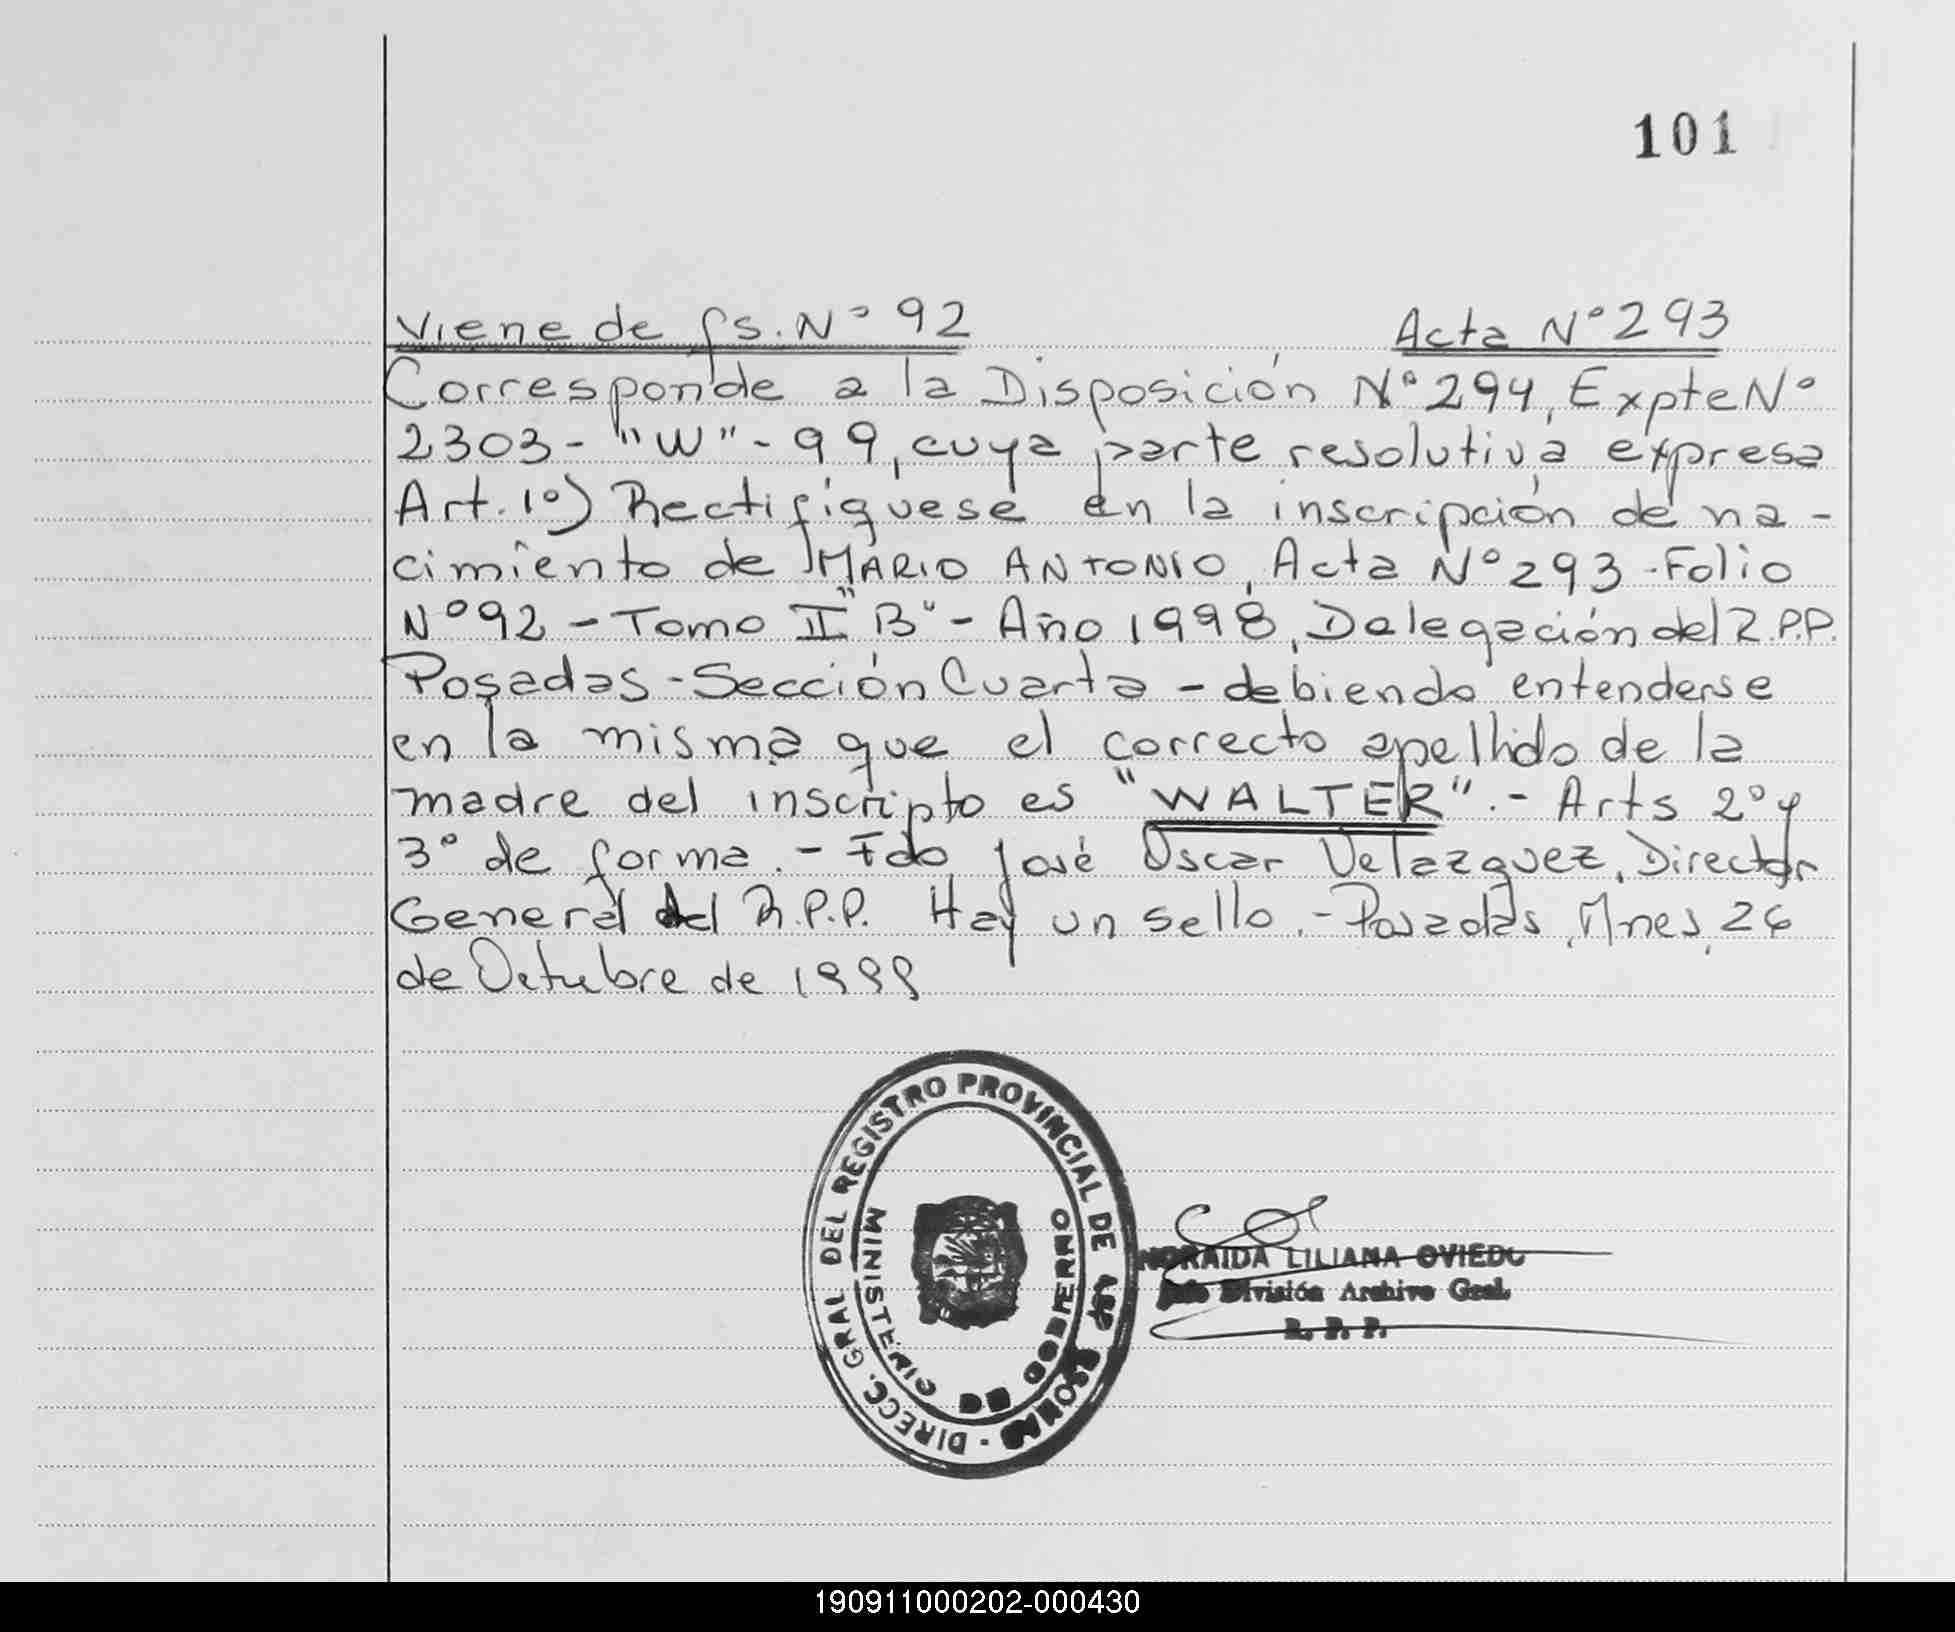 101
Viene de fs. Nº 92 Acta Nº 293
Corresponde a la Disposición Nº 294, Expte Nº
2303 - "W" - 99, cuya parte resolutiva expresa
Art. 1º) Rectifíquese en la inscripción de na-
cimiento de MARIO ANTONIO, Acta Nº 293 - Folio
Nº 92 - Tomo II "B" - Año 1998, Delegación del R.P.P.
Posadas - Sección Cuarta - debiendo entenderse
en la misma que el correcto apellido de la
madre del inscripto es "WALTER". - Arts 2º y
3º de forma. - Fdo José Oscar Velazquez, Director
General del R.P.P. Hay un sello. - Posadas, Mnes, 26
de Octubre de 1999
DIRECC. GRAL DEL REGISTRO PROVINCIAL DE LAS PERSONAS -
MINISTERIO DE GOBIERNO
NORAIDA LILIANA OVIEDO
Jefe División Archivo Gral.
R. P. P.
190911000202-000430